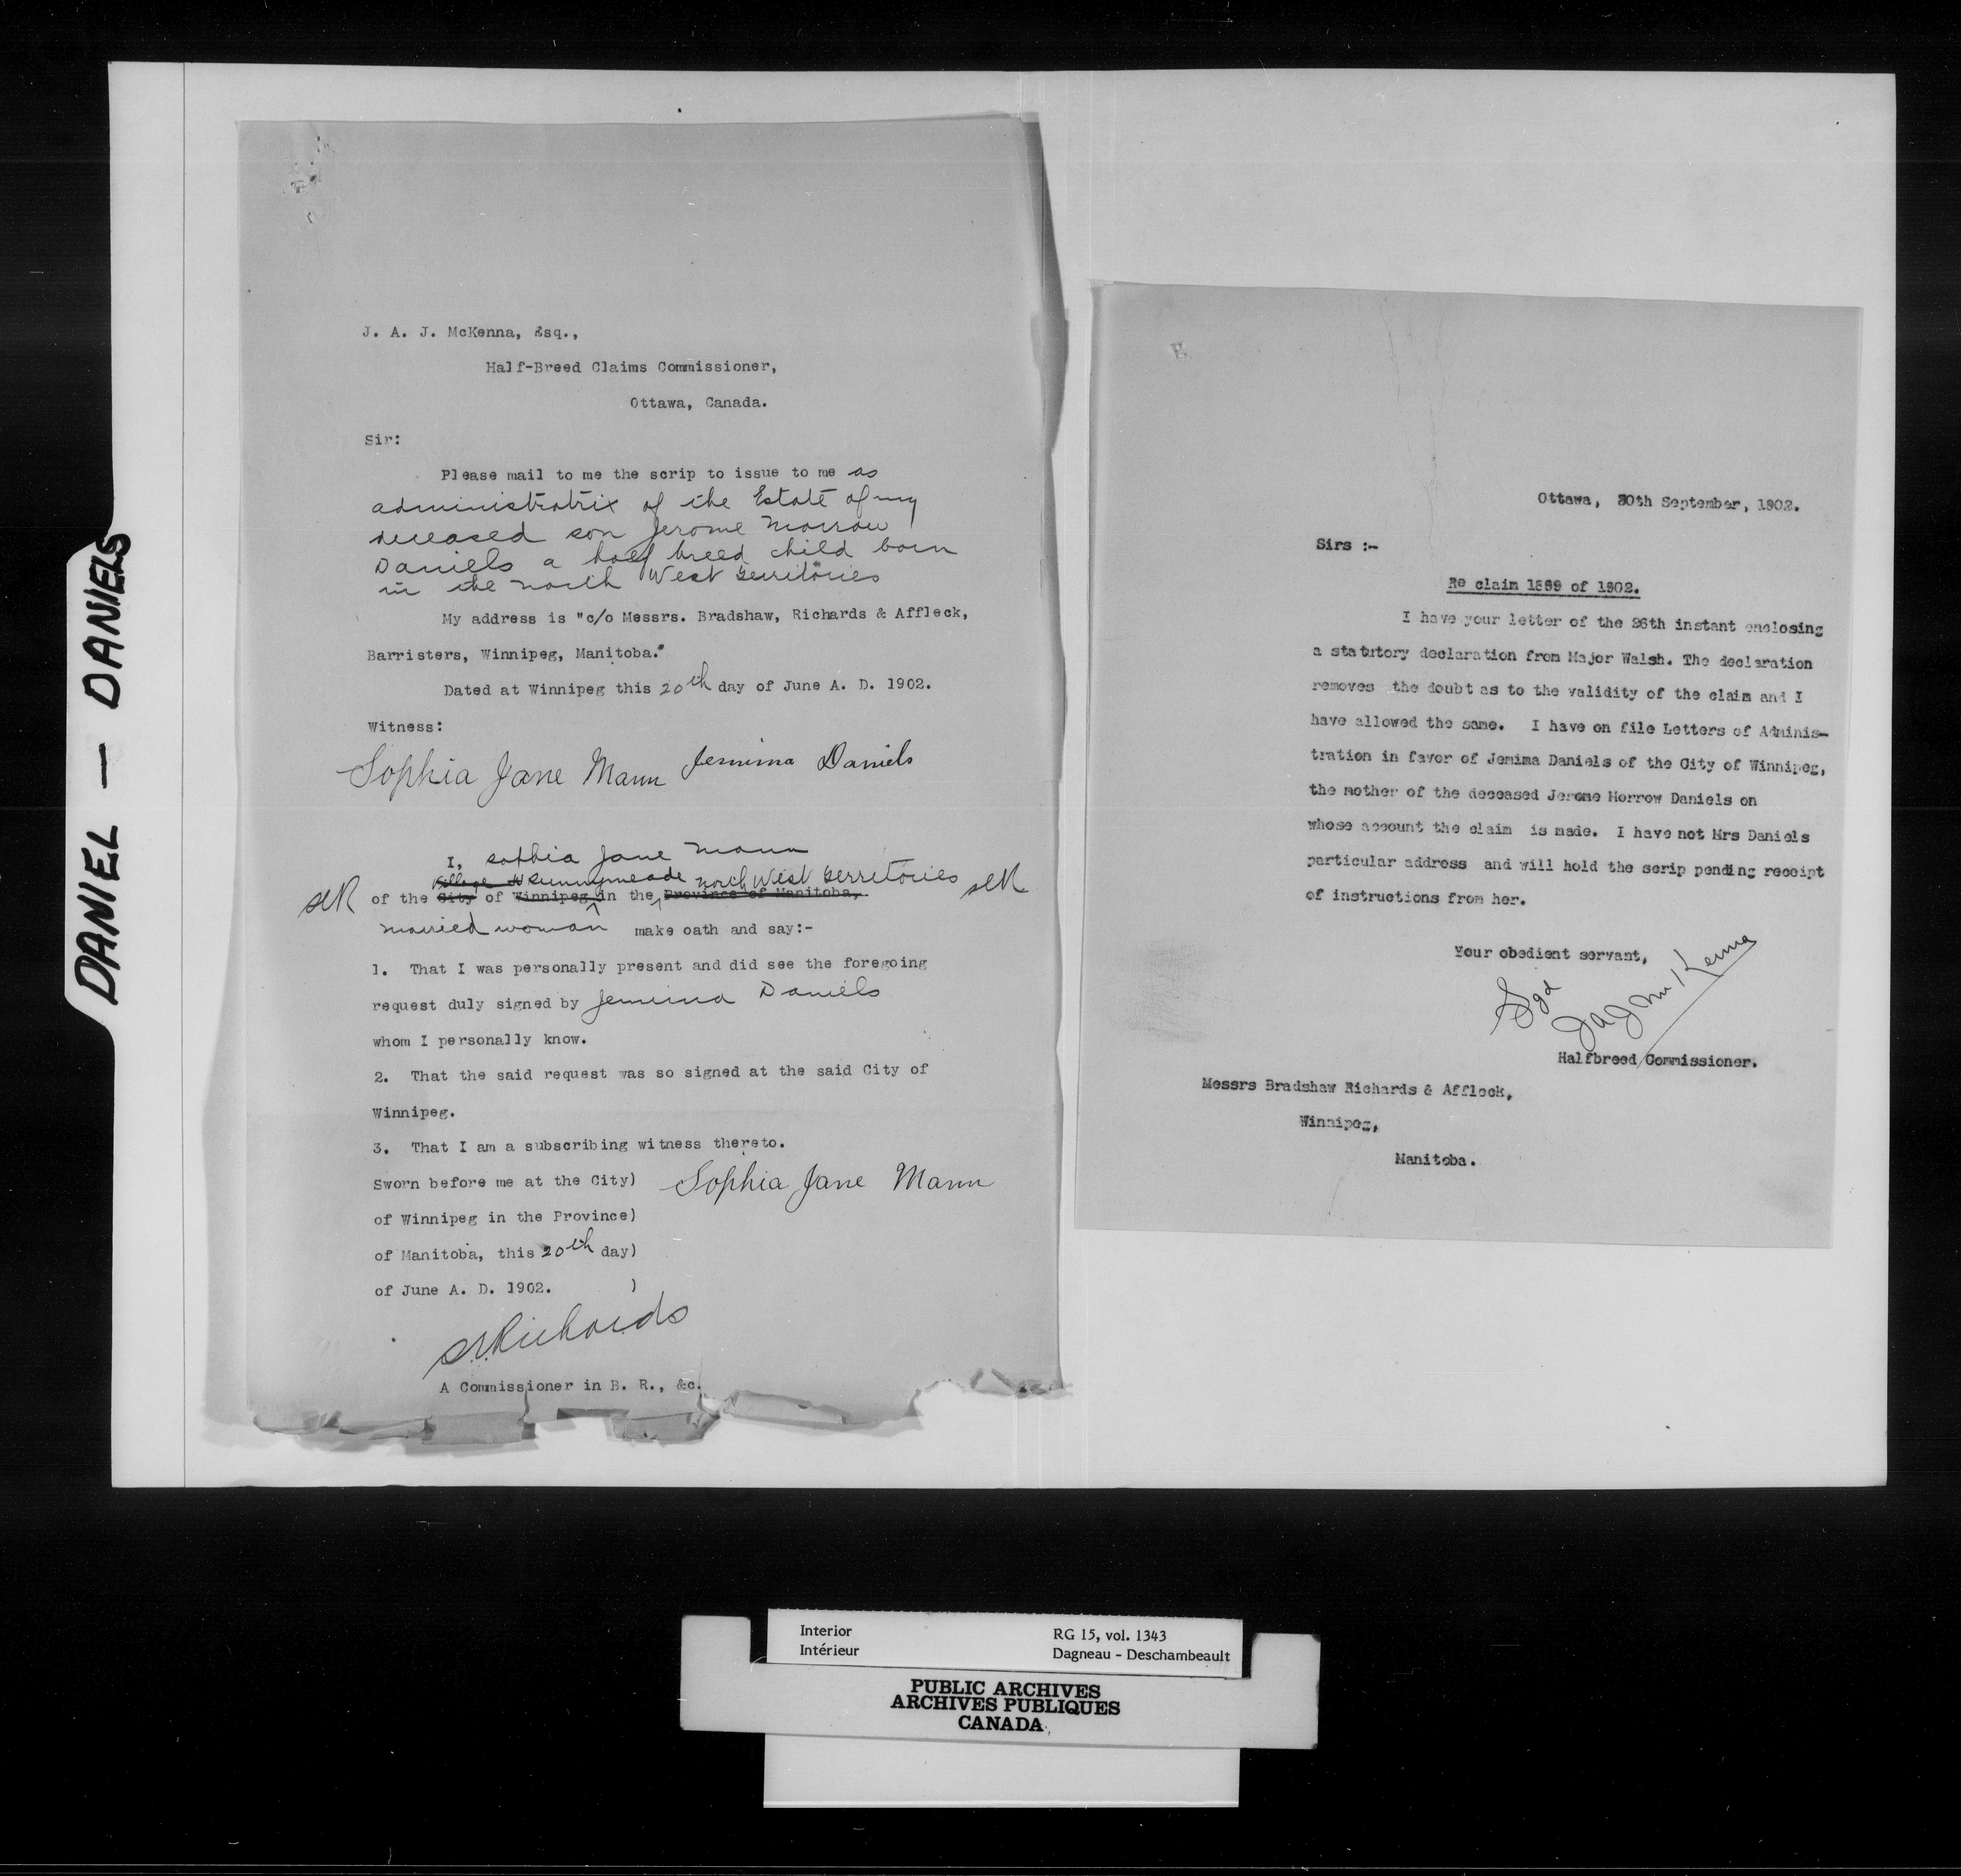 DANIEL — DANIELS
J. A. J. McKenna, Esq.,
Half-Breed Claims Commissioner,
Ottawa, Canada.
Sir:
Please mail to me the scrip to issue to me as
administratrix of the Estate of my
deceased son Jerome Morrow
Daniels a half breed child born
in the North West Territories
My address is "c/o Messrs. Bradshaw, Richards & Affleck,
Barristers, Winnipeg, Manitoba."
Dated at Winnipeg this 20th day of June A. D. 1902.
Witness:
Sophia Jane Mann Jemima Daniels
I, Sophia Jane Mann
Village Runnymeade North West Territories
SLR of the City of Winnipeg in the Province of Manitoba, SLR
married woman make oath and say:-
1. That I was personally present and did see the foregoing
request duly signed by Jemima Daniels
whom I personally know.
2. That the said request was so signed at the said City of
Winnipeg.
3. That I am a subscribing witness thereto.
Sworn before me at the City) Sophia Jane Mann
of Winnipeg in the Province)
of Manitoba, this 20th day)
of June A. D. 1902. )
S.L.Richards
A Commissioner in B. R., &c.
Ottawa, 30th September, 1902.
Sirs :-
Re claim 1899 of 1902.
I have your letter of the 26th instant enclosing
a statutory declaration from Major Walsh. The declaration
removes the doubt as to the validity of the claim and I
have allowed the same. I have on file Letters of Adminis-
tration in favor of Jemima Daniels of the City of Winnipeg,
the mother of the deceased Jerome Morrow Daniels on
whose account the claim is made. I have not Mrs Daniels
particular address and will hold the scrip pending receipt
of instructions from her.
Your obedient servant,
Sgd
J A J McKenna
Halfbreed Commissioner.
Messrs Bradshaw Richards & Affleck,
Winnipeg,
Manitoba.
Interior RG 15, vol. 1343
Intérieur Dagneau - Deschambeault
PUBLIC ARCHIVES
ARCHIVES PUBLIQUES
CANADA